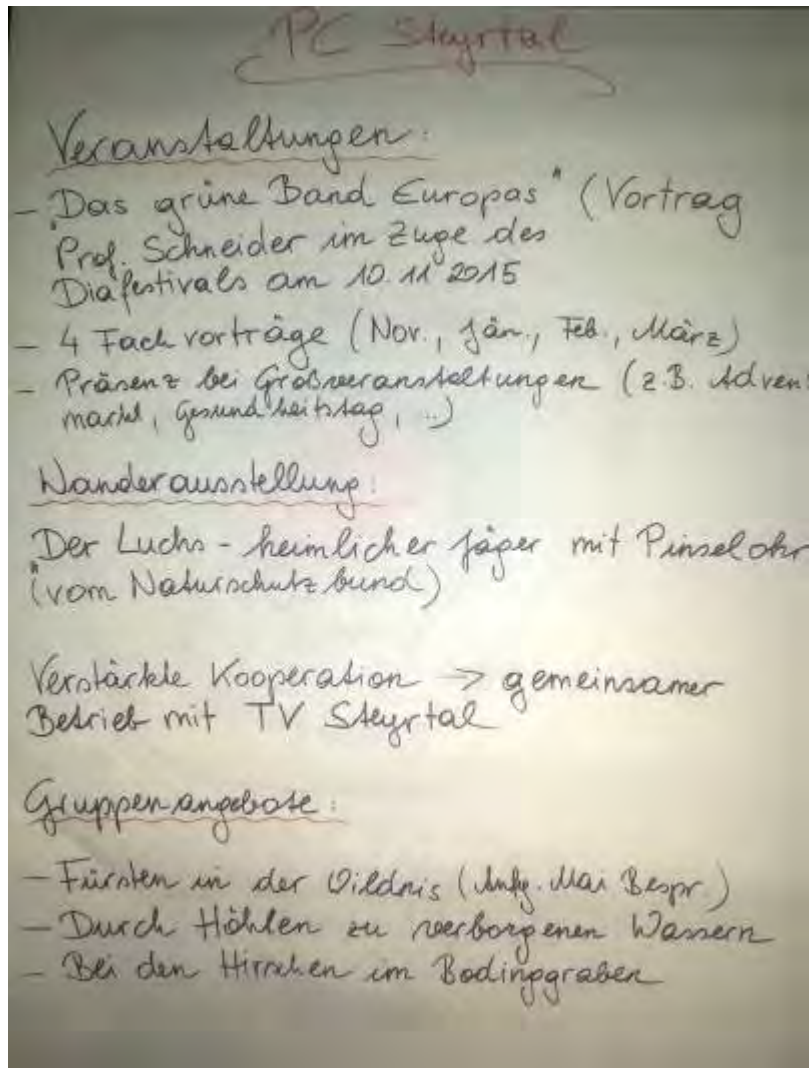 PC Steyrtal
Veranstaltungen:
- "Das grüne Band Europas" (Vortrag
Prof. Schneider im Zuge des
Diafestivals am 10.11 2015
- 4 Fachvorträge (Nov., Jän., Feb., März)
- Präsenz bei Großveranstaltungen (z.B. Advent
markt, Gesundheitstag, ..)
Wanderausstellung:
Der Luchs - heimlicher Jäger mit Pinselohr
"(vom Naturschutzbund)
Verstärkte Kooperation -> gemeinsamer
Betrieb mit TV Steyrtal
Gruppenangebote:
- Fürsten in der Wildnis (Anfg. Mai Bespr.)
- Durch Höhlen zu verborgenen Wassern
- Bei den Hirschen im Bodinggraben